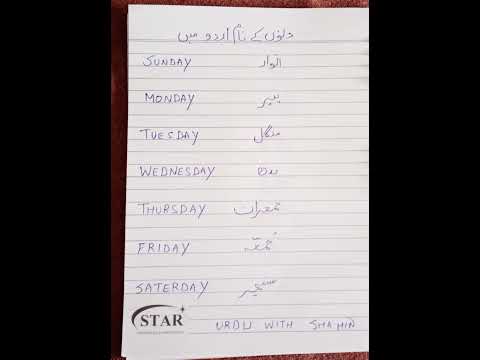 دنوں کے نام اردو میں
SUNDAY اتوار
MONDAY پیر
TUESDAY منگل
WEDNESDAY بدھ
THURSDAY جمعرات
FRIDAY جمعہ
SATERDAY
STAR
URDU WITH SHAHIN